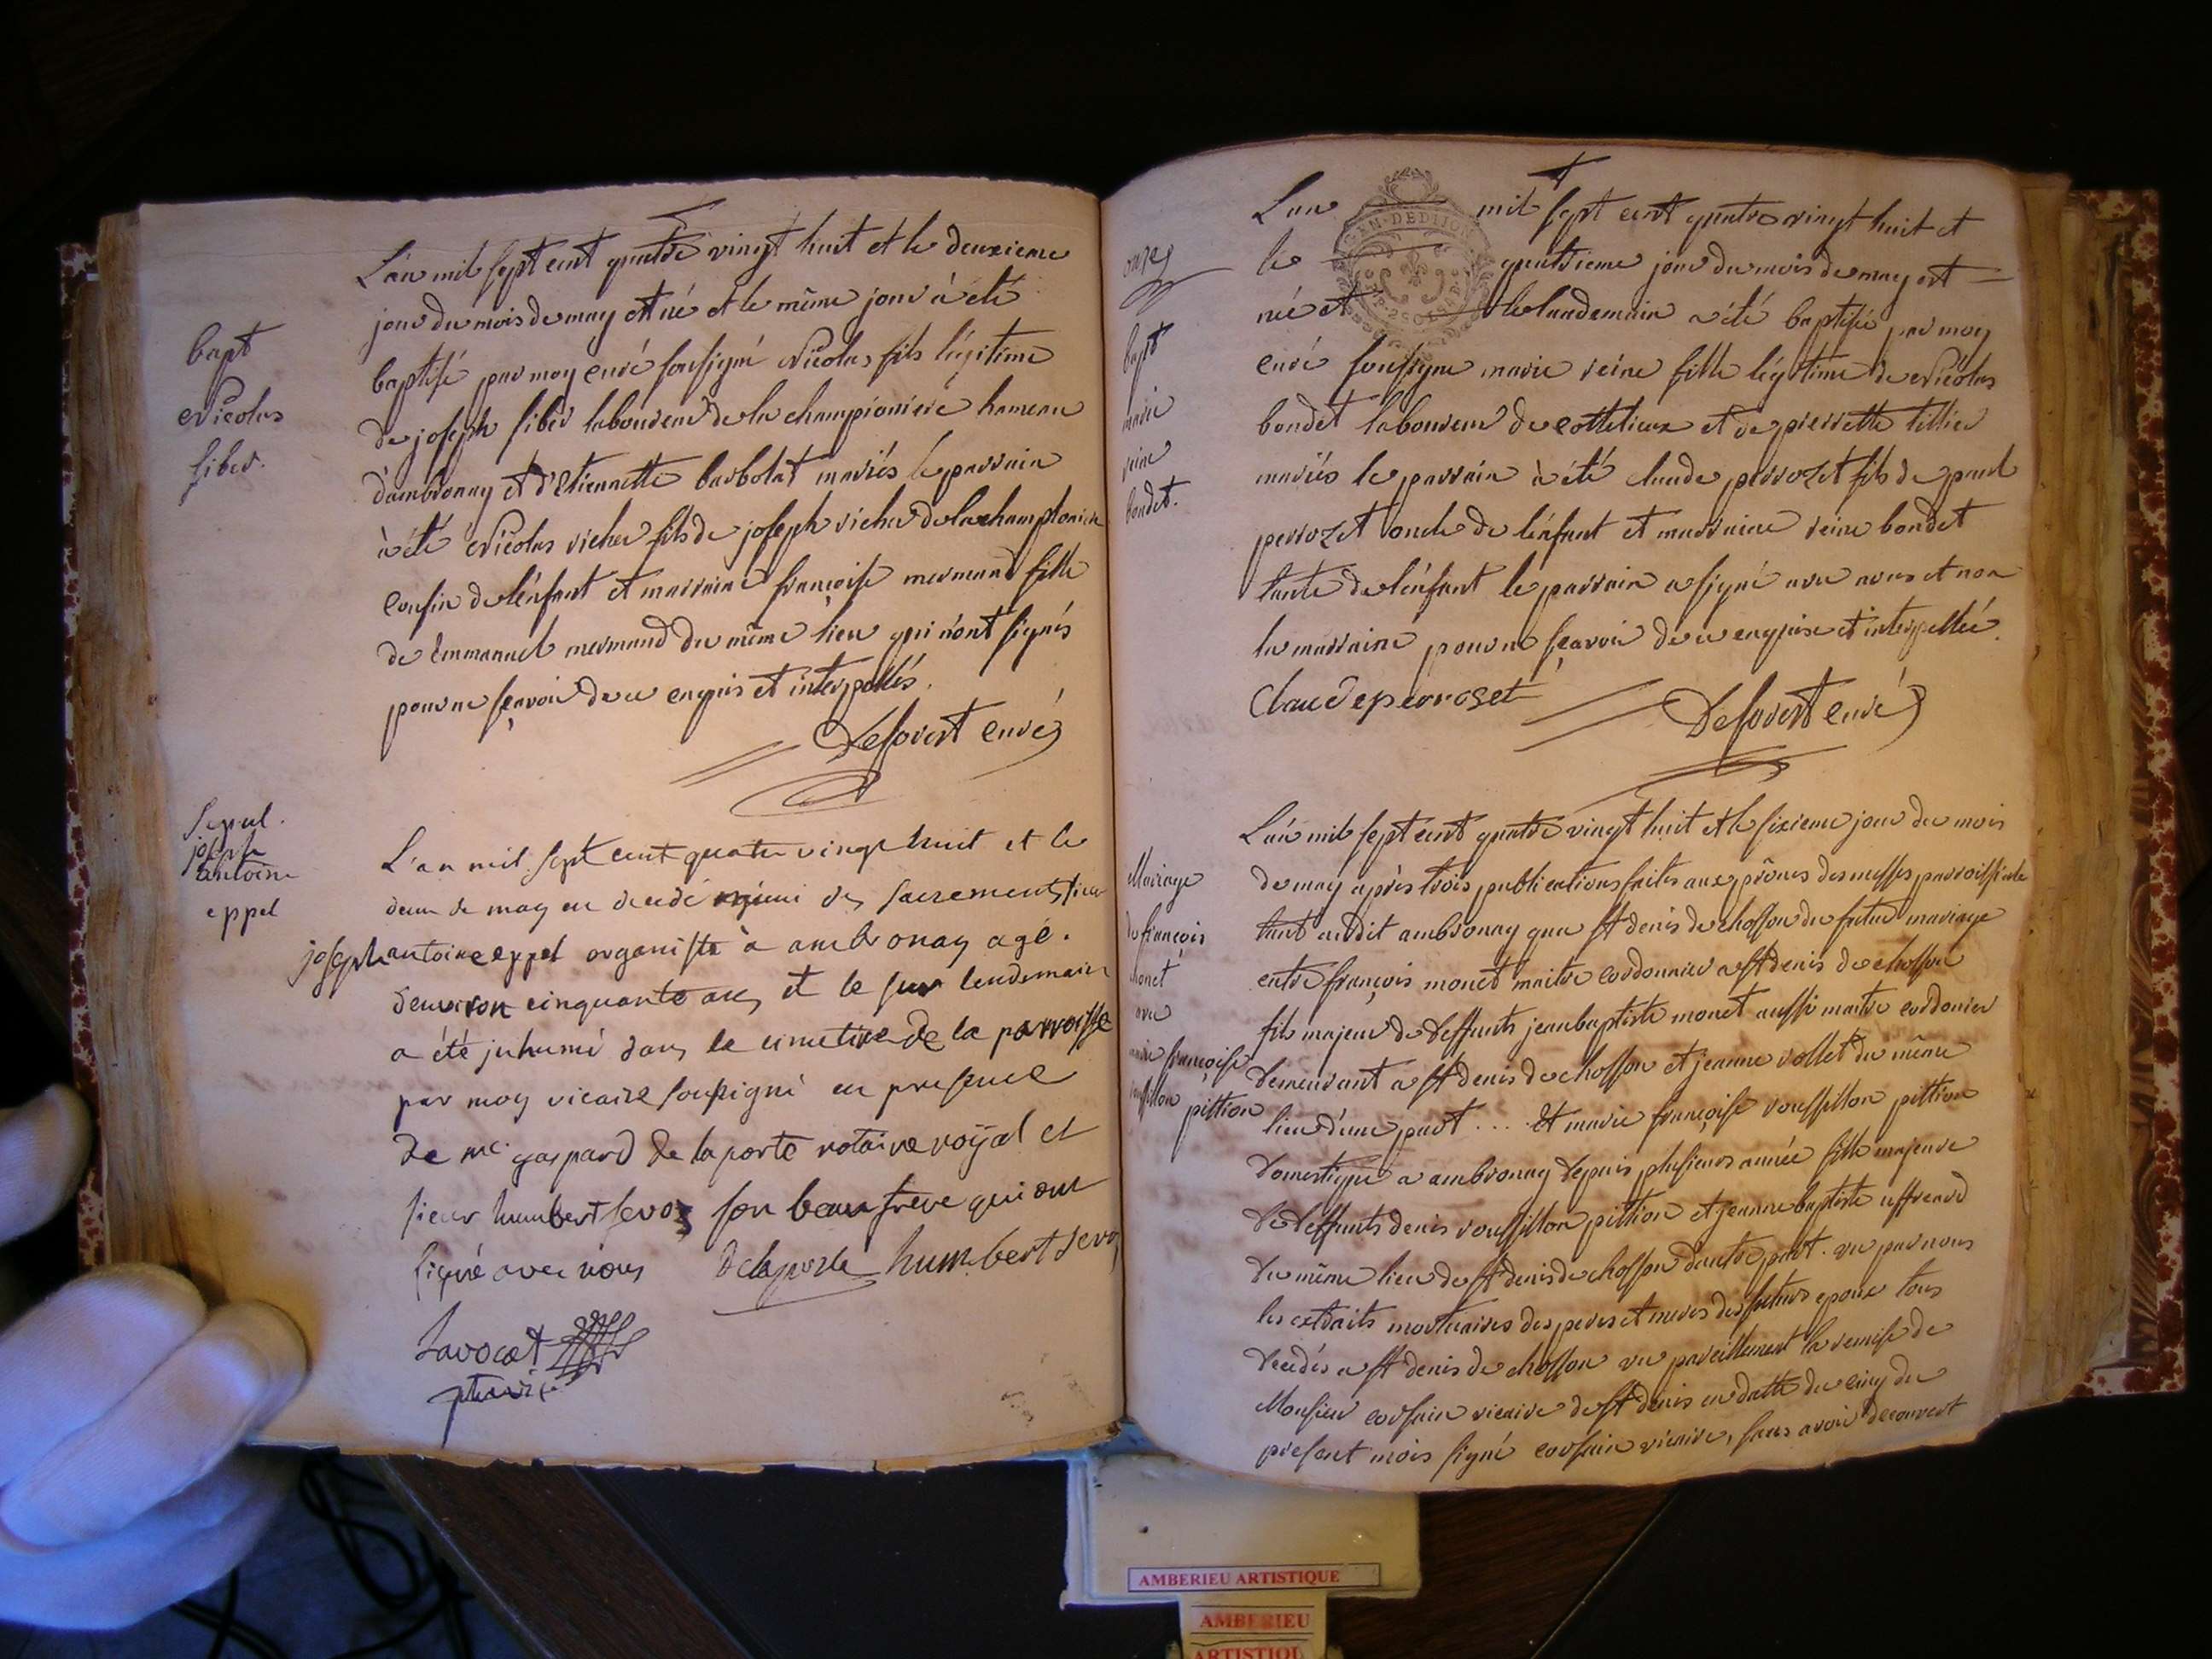 bapt
Nicolas
fiber.
L'an mil sept cent quatre vingt huit et le deuxieme
jour du mois de may est né et le même jour à été
baptisé par moy curé soussigné Nicolas fils légitime
de joseph fiber laboureur de la championiere hameau
d'ambronay et d'Etiennette barbolat mariés le parrain
à été Nicolas richer fils de joseph richer de la championiere
cousin de l'énfant et marraine françoise mermand fille
de Emmanuel mermand du même lieu qui n'ont signés
pour ne sçavoir de ce enquis et interpellés.
Deforest curé
Sepul.
joseph
antoine
eppel
L'an mil sept cent quatre vingt huit et le
deux de may est decedé muni des sacrements sieur
joseph antoine eppel organiste à ambronay agé.
d'environ cinquante ans et le sur lendemain
a été inhumé dans le cimetiere de la parroisse
par moy vicaire soussigné en presence
de me. gaspard de la porte notaire royal et
sieur humbert sevoz son beau frere qui ont
signé avec nous Delaporte humbert sevoz
Lavocat
onze
bapt
marie
reine
bondet.
L'an mil sept cent quatre vingt huit et
le quatrieme jour du mois de may est
née et le landemain a été baptisée par moy
curé soussigné marie reine fille légitime de Nicolas
bondet laboureur de cottelieux et de pierrette tillier
mariés le parrain à été claude perrozet fils de paul
perrozet oncle de l'énfant et marraine reine bondet
tante de l'énfant le parrain a signé avec nous et non
la marraine pour ne sçavoir de ce enquise et interpellée.
Claude peroset Deforest curé
GEN. DE DIJON
Mariage
de françois
monet
avec
marie françoise
roussillon pittion
L'an mil sept cent quatre vingt huit et le sixieme jour du mois
de may après trois publications faites aux prônes des messes parroissiale
tant audit ambronay que st denis de chosson du futur mariage
entre françois monet maitre cordonnier a st denis de chosson
fils majeur de deffunts jean baptiste monet aussi maitre cordonier
demeurant a st denis de chosson et jeanne vollet du même
lieu d'une part .... Et marie françoise roussillon pittion
domestique a ambronay depuis plusieurs année fille majeure
de deffunts denis roussillon pittion et jeanne baptiste
du même lieu de st denis de chosson d'autre part. vu par nous
les extraits mortuaires des peres et meres des futurs epoux tous
decedés a st denis de chosson vu pareillement la remise de
Monsieur corsain vicaire de st denis en datte du cinq du
present mois signé corsain vicaire, sans avoir decouvert
AMBERIEU ARTISTIQUE
AMBERIEU
ARTISTIQU